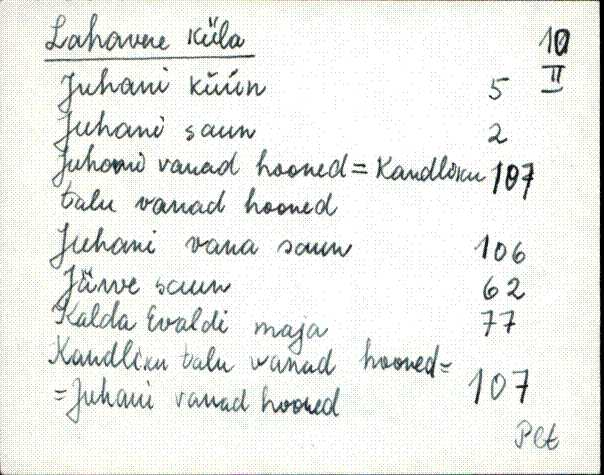 Lahavere küla 10
II
Juhani küün 5
Juhani saun 2
Juhani vanad hooned = Kandliku 107
talu vanad hooned
Juhani vana saun 106
Järve saun 62
Kalda Evaldi maja 77
Kandliku talu vanad hooned =
= Juhani vanad hooned 107
Plt